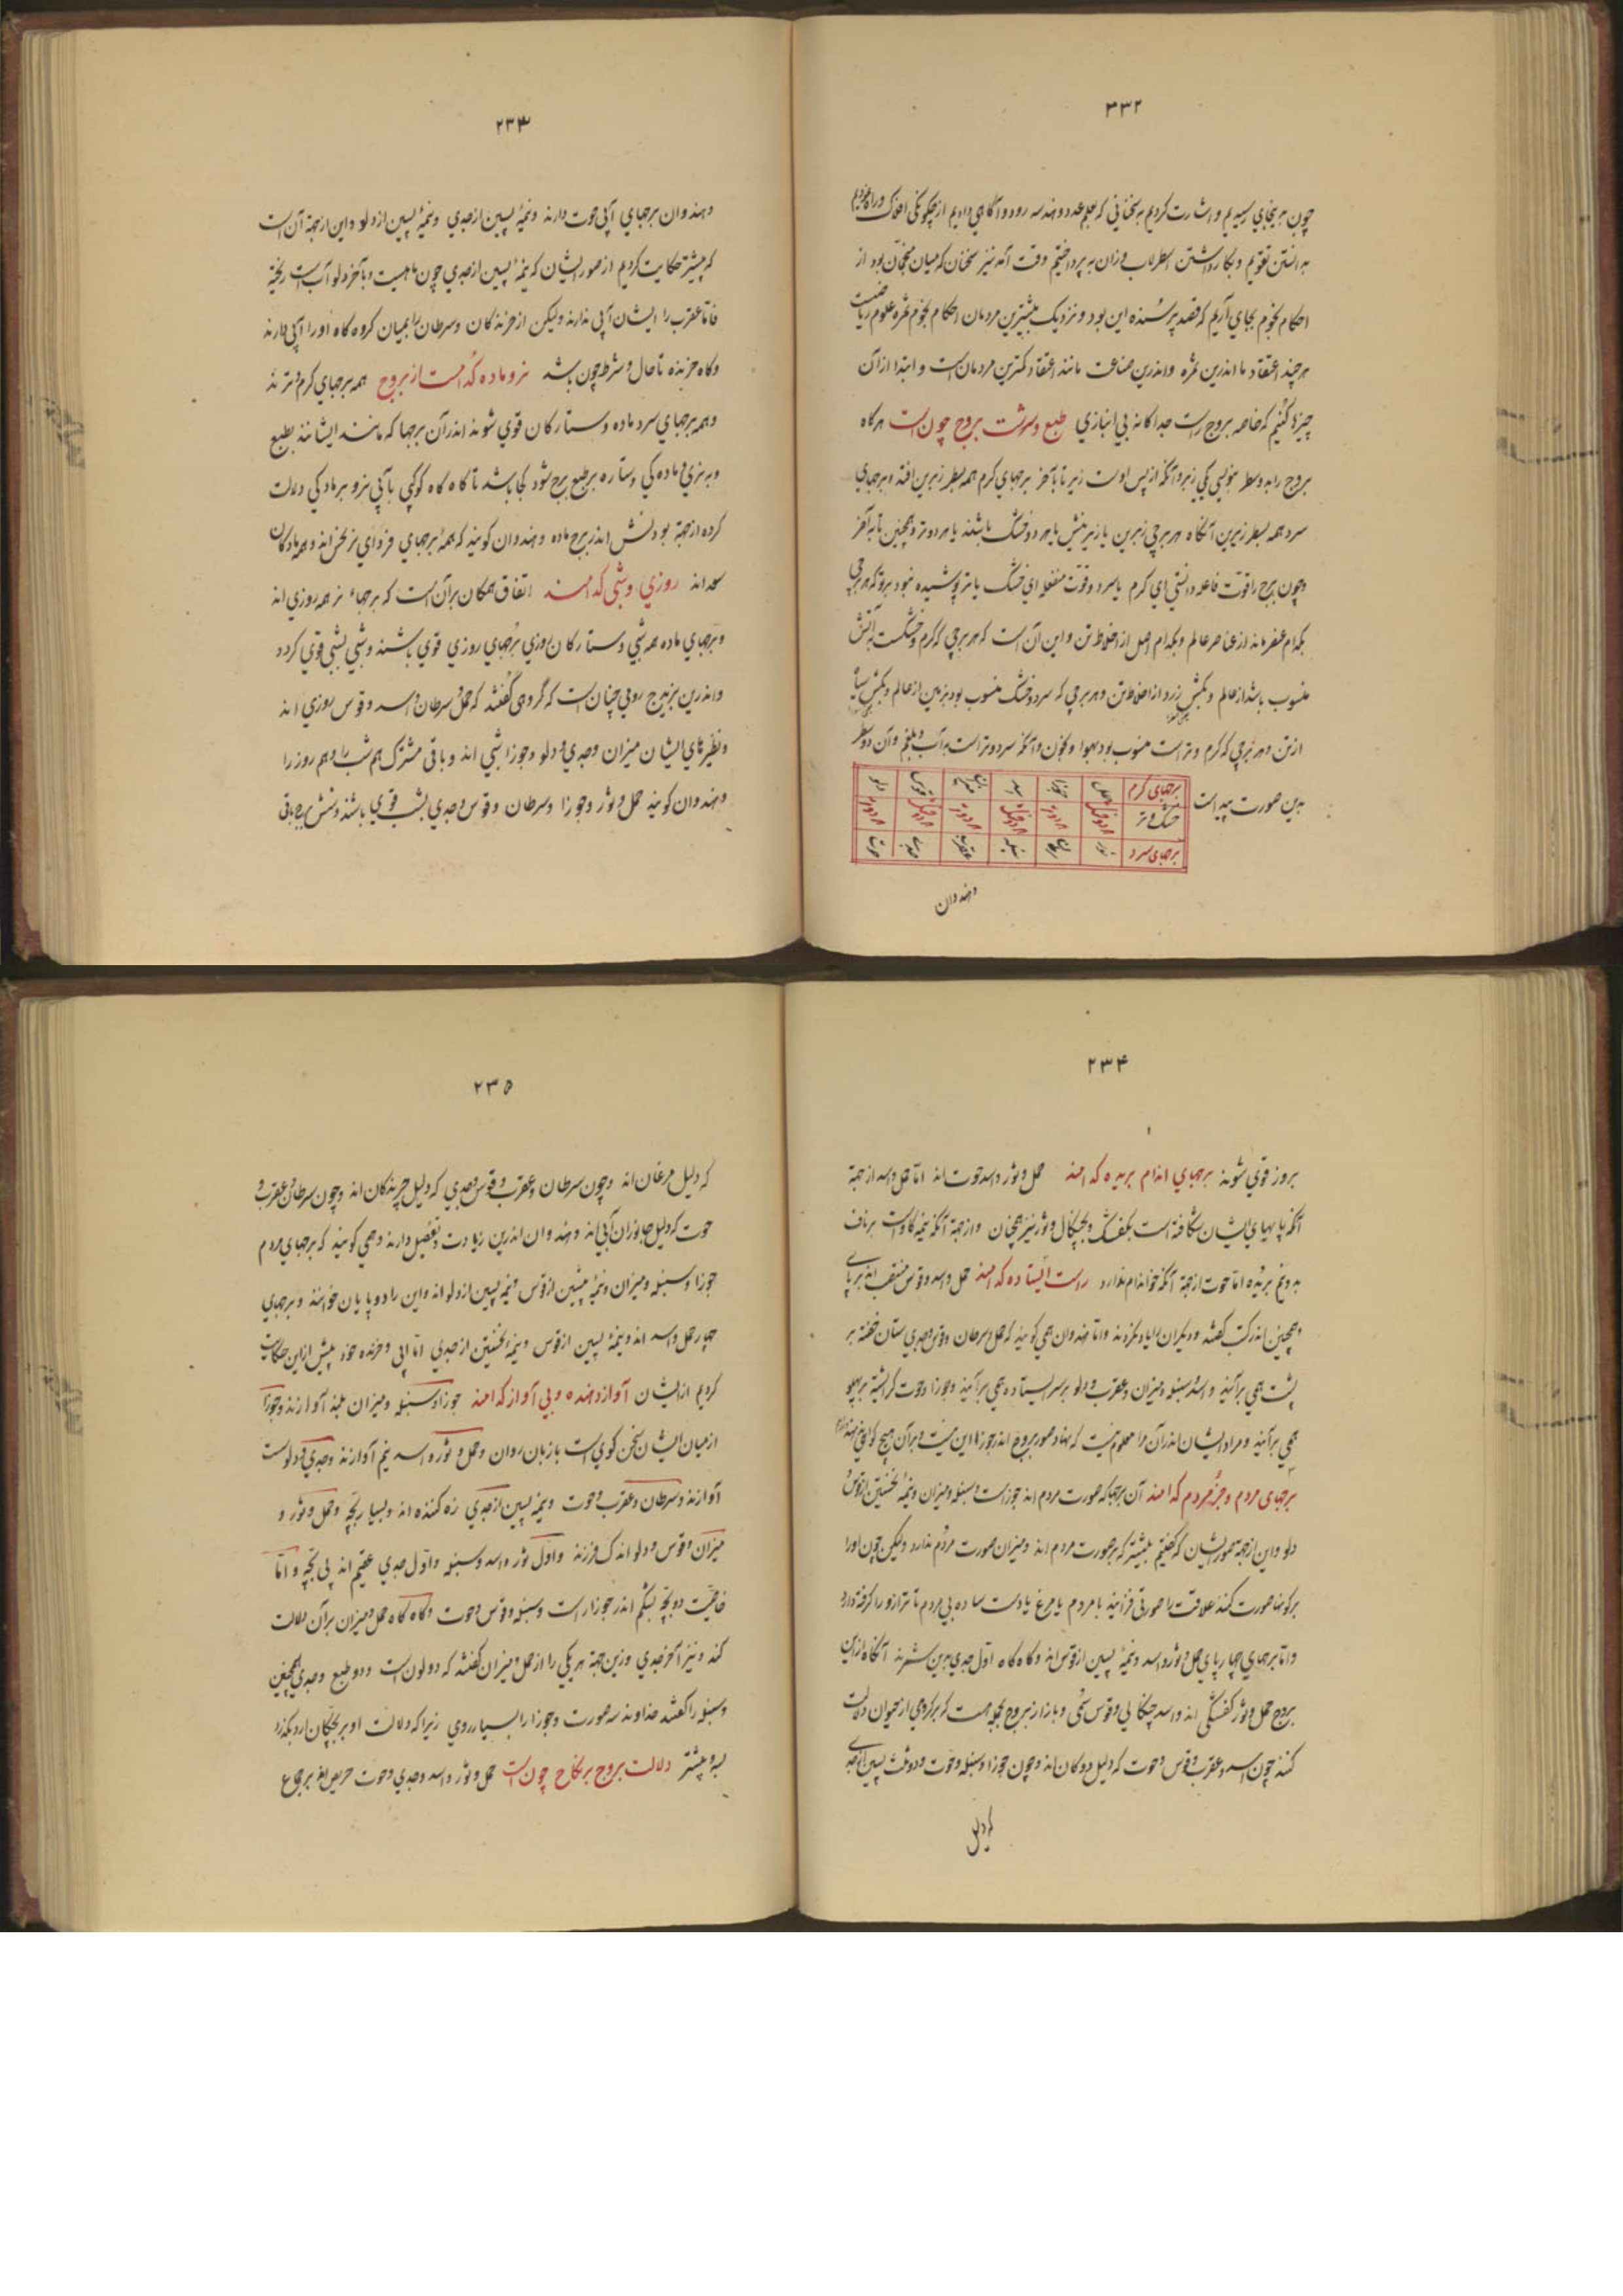 ۳۳۲
چون به اینجای رسیدیم و اشارت کردیم به سخنانی که بعلم عدد و هندسه رود و آگاهی دادیم از چگونگی افلاک
بدانستن تقویم و بکار داشتن اسطرلاب و زان بپرداختیم وقت آمد نیز سخنان که میان منجمان بود از
احکام نجوم بجای آریم که قصد پرسنده این بود و نزدیک بیشترین مردمان احکام نجوم ثمره علوم ریاضیست
هرچند اعتقاد ما اندرین ثمره و اندرین صناعت مانند اعتقاد کمترین مردمان است و ابتدا از آن
چیزها کنیم که خاصه بروج راست جداگانه بی انبازی طبع و سرشت بروج چون است هرگاه
بروج را بدو سطر بنویسی یکی زبر و آنگه از پس اوست زیر تا بآخر برجهای گرم همه بسطر زبرین افتد و برجهای
سرد همه بسطر زیرین آنگاه هر برجی زبرین با زیرینش یا هر دو خشک باشند یا هر دو تر و همچنین تا به آخر
و چون برج را قوت فاعله دانستی ای گرم یا سرد و قوت منفعله ای خشک یا تر پوشیده نبود بر تو که هر برجی
بکدام عنصر ماند از عناصر عالم و بکدام اصل از اخلاط تن و این آن است که هر برجی که گرم و خشکست به آتش
منسوب باشد از عالم و بکش زرد از اخلاط تن و هر برجی که سرد و خشک منسوب بود بزمین از عالم و بکش سیاه
از تن و هر برجی که گرم و تر است منسوب بود بهوا و بخون و آنکه سرد و تر است به آب و بلغم و آن دو سطر
بدین صورت پیداست
برجهای گرم حمل جوزا اسد میزان قوس دلو
خشک و تر هردوخشک هردوتر هردوخشک هردوتر هردوخشک هردوتر
برجهای سرد ثور سرطان سنبله عقرب جدی حوت
و هندوان
۲۳۳
و هندوان برجهای آبی حوت دارند و نیمهٔ پسین از جدی و نیمهٔ پسین از دلو و این از جهة آن است
که پیشتر حکایت کردیم از صور ایشان که نیمهٔ پسین از جدی چون ماهیست و بآخر دلو آب است ریخته
فاما عقرب را ایشان آبی ندارند ولیکن از خزندگان و سرطان را بمیان گروه گاه او را آبی دارند
و گاه خزنده تا حال و شرط چون باشد نر و ماده کدامست از بروج همه برجهای گرم نرند
و همه برجهای سرد ماده و ستارگان قوی شوند اندر آن برجها که مانند ایشانند بطبع
و به نری و مادگی و ستاره بر طبع برج شود کجا باشد تا گاه گاه کوکبی یابی نر و بر مادگی دلالت
کرده از جهة بودنش اندر برج ماده و هندوان گویند که همه برجهای فرد ای نر نحس اند و همه مادگان
سعد اند روزی و شبی کدامند اتفاق همگان بر آن است که برجهاء نر همه روزی اند
و برجهای ماده همه شبی و ستارگان روزی ببرجهای روزی قوی باشند و شبی بشبی قوی گردد
و اندرین بزیدج رومی چنان است که گروهی گفتند که حمل و سرطان و اسد و قوس روزی اند
و نظیرهای ایشان میزان و جدی و دلو و جوزا شبی اند و باقی مشترک هم شب را و هم روز را
و هندوان گویند حمل و ثور و جوزا و سرطان و قوس و جدی بشب قوی باشند و شش برج باقی
۲۳۴
بروز قوی شوند برجهای اندام بریده کدامند حمل و ثور و اسد و حوت اند اما حمل و اسد از جهة
آنکه پایهای ایشان شکافته است بکفشک و بچنگال و ثور نیز همچنان و از جهة آنکه نیمه گاوست بر ناف
بدو نیم بریده اما حوت از جهة آنکه خود اندام ندارد راست ایستاده کدامند حمل و اسد و قوس منتصب اند بر پای
و همچنین اندر کتب گفتند و دیگران را یاد نکردند و اما هندوان همی گویند که حمل و سرطان و قوس و جدی ستان خفته بر
پشت همی برآیند و اسد و سنبله و میزان و عقرب و دلو بر سر ایستاده همی برآیند و جوزا و حوت گرداگشته بر پهلو
همی برآیند و مراد ایشان اندر آن مرا معلوم نیست که نهاد صور بروج اندر جوزا این نیست و بر آن هیچ گواهی
برجهای مردم و جز مردم کدامند آن برجها که صورت مردم اند جوزا است و سنبله و میزان و نیمه نخستین از قوس
دلو و این از جهة صور ایشان که گفتیم بیشتر که بر صورت مردم اند و میزان صورت مردم ندارد ولیکن چون او را
بر کره‌ها صورت کنند علاقت را صورتی فزایند یا مردم یا مرغ یا دست ساده بی مردم تا ترازو را گرفته دارد
و اما برجهای چهارپای حمل و ثور و اسد و نیمهٔ پسین از قوس اند و گاه گاه اول جدی بدین شمرند آنگاه از این
بروج حمل و ثور کفشکی اند و اسد چنگالی و قوس سمی و باز از بروج بجمله هست که بر گروهی از حیوان دلالت
کنند چون اسد و عقرب و قوس و حوت که دلیل ددگان اند و چون جوزا و سنبله و حوت و دو ثلث پسین از جدی
که دلیل
۲۳۵
که دلیل مرغان اند و چون سرطان و عقرب و قوس و جدی که دلیل خزندگان اند و چون سرطان و عقرب و
حوت که دلیل جانوران آبی اند و هندوان اندرین زیادت و تفضیل دارند و همی گویند که برجهای مردم
جوزا و سنبله و میزان و نیمهٔ پیشین از قوس و نیمه پسین از دلو اند و این را دوپایان خوانند و برجهای
چهار حمل و اسد اند و نیمهٔ پسین از قوس و نیمهٔ نخستین از جدی اما آبی و خزنده خود پیش از این حکایت
کردیم از ایشان آواز دهنده و بی آواز کدامند جوزا و سنبله و میزان بلند آوازند و جوزا
از میان ایشان سخن گوی است با زبان روان و حمل و ثور و اسد نیم آوازند و جدی و دلو سست
آوازند و سرطان و عقرب و حوت و نیمه پسین از جدی زه کننده اند و بسیار بچّه و حمل و ثور و
میزان و قوس و دلو اندک فرزند و اول ثور و اسد و سنبله و اول جدی عقیم اند بی بچه و اما
خاصیت دو بچّه بشکم اندر جوزا راست و سنبله و قوس و حوت و گاه گاه حمل و میزان بر آن دلالت
کند و نیز آخر جدی و زین جهة هر یکی را از حمل و میزان گفتند که دو لون است و دو طبع و جدی همچنین
و سنبله را گفتند خداوند سه صورت و جوزا را بسیار روی زیرا که دلالت او بر بچگان از دو بگذرد
بسه و بیشتر دلالت بروج بر نکاح چون است حمل و ثور و اسد و جدی و حوت حریص اند بر جماع